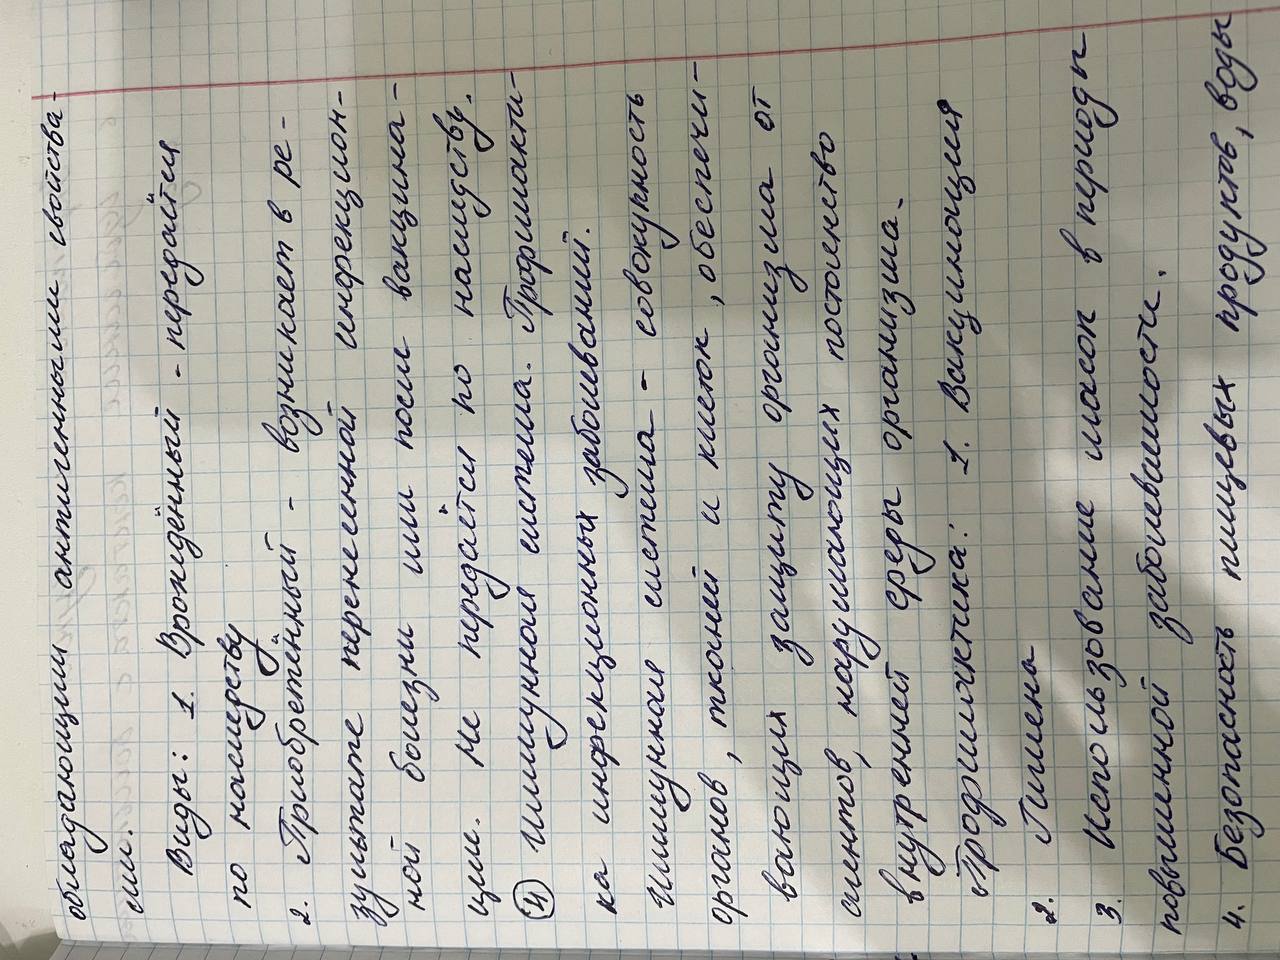 обладающими антигенными свойства-
ми.
Виды: 1. Врождённый - передаётся
по наследству
2. Приобретённый - возникает в ре-
зультате перенесенной инфекцион-
ной болезни или после вакцина-
ции. Не передаётся по наследству.
④ Иммунная система. Профилакти-
ка инфекционных заболеваний.
Иммунная система - совокупность
органов, тканей и клеток, обеспечи-
вающих защиту организма от
агентов, нарушающих постоенство
внутренней среды организма.
Профилактика: 1. Вакцинация
2. Гигиена
3. Использование масок в периоды
повышенной заболеваемости.
4. Безопасность пищевых продуктов, воды